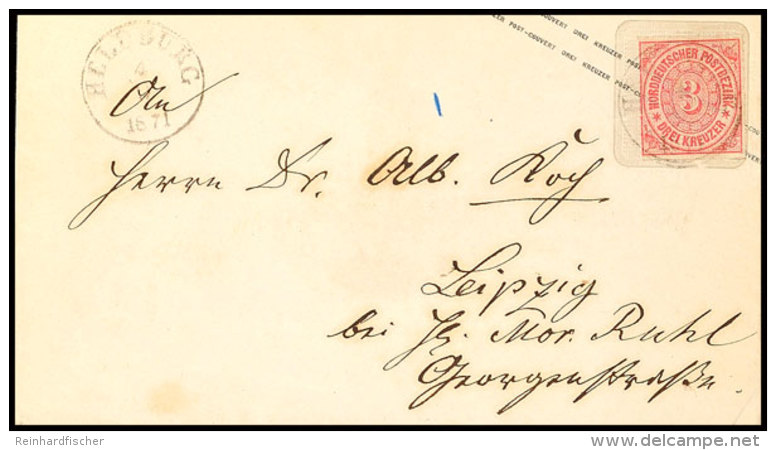 HELDBURG
4
1871
POST-COUVERT DREI KREUZER POST-COUVERT DREI KREUZER
NORDDEUTSCHER POSTBEZIRK
3
* DREI KREUZER *
An
Herrn Dr. Alb. Koch
Leipzig
bei Mor. Ruhl
Georgenstraße.
Reinhardfischer
delcampe.net